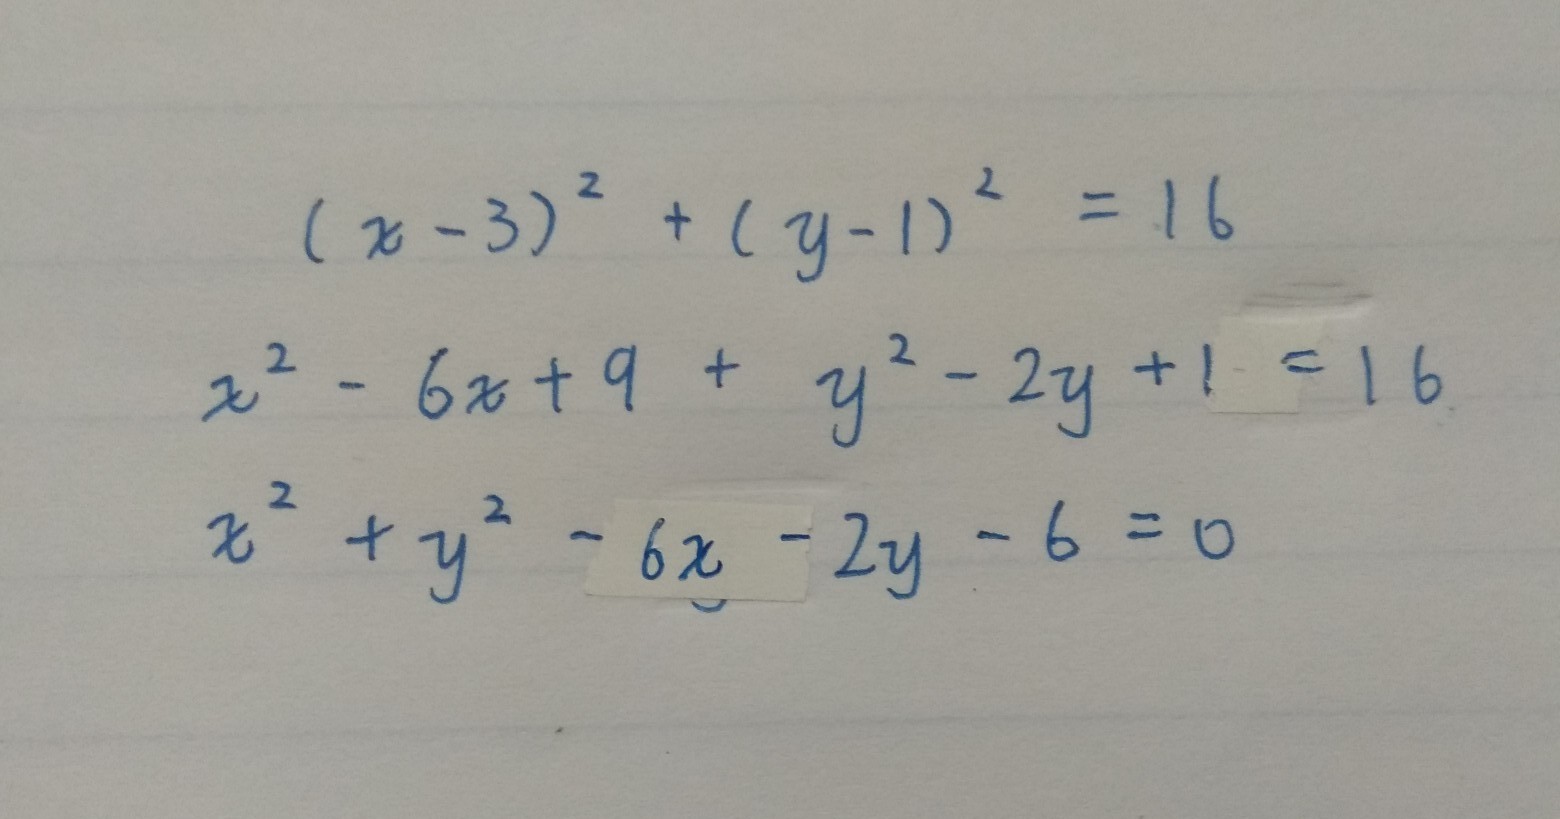 (x-3)² + (y-1)² = 16
x² - 6x + 9 + y² - 2y + 1 = 16
x² + y² - 6x - 2y - 6 = 0